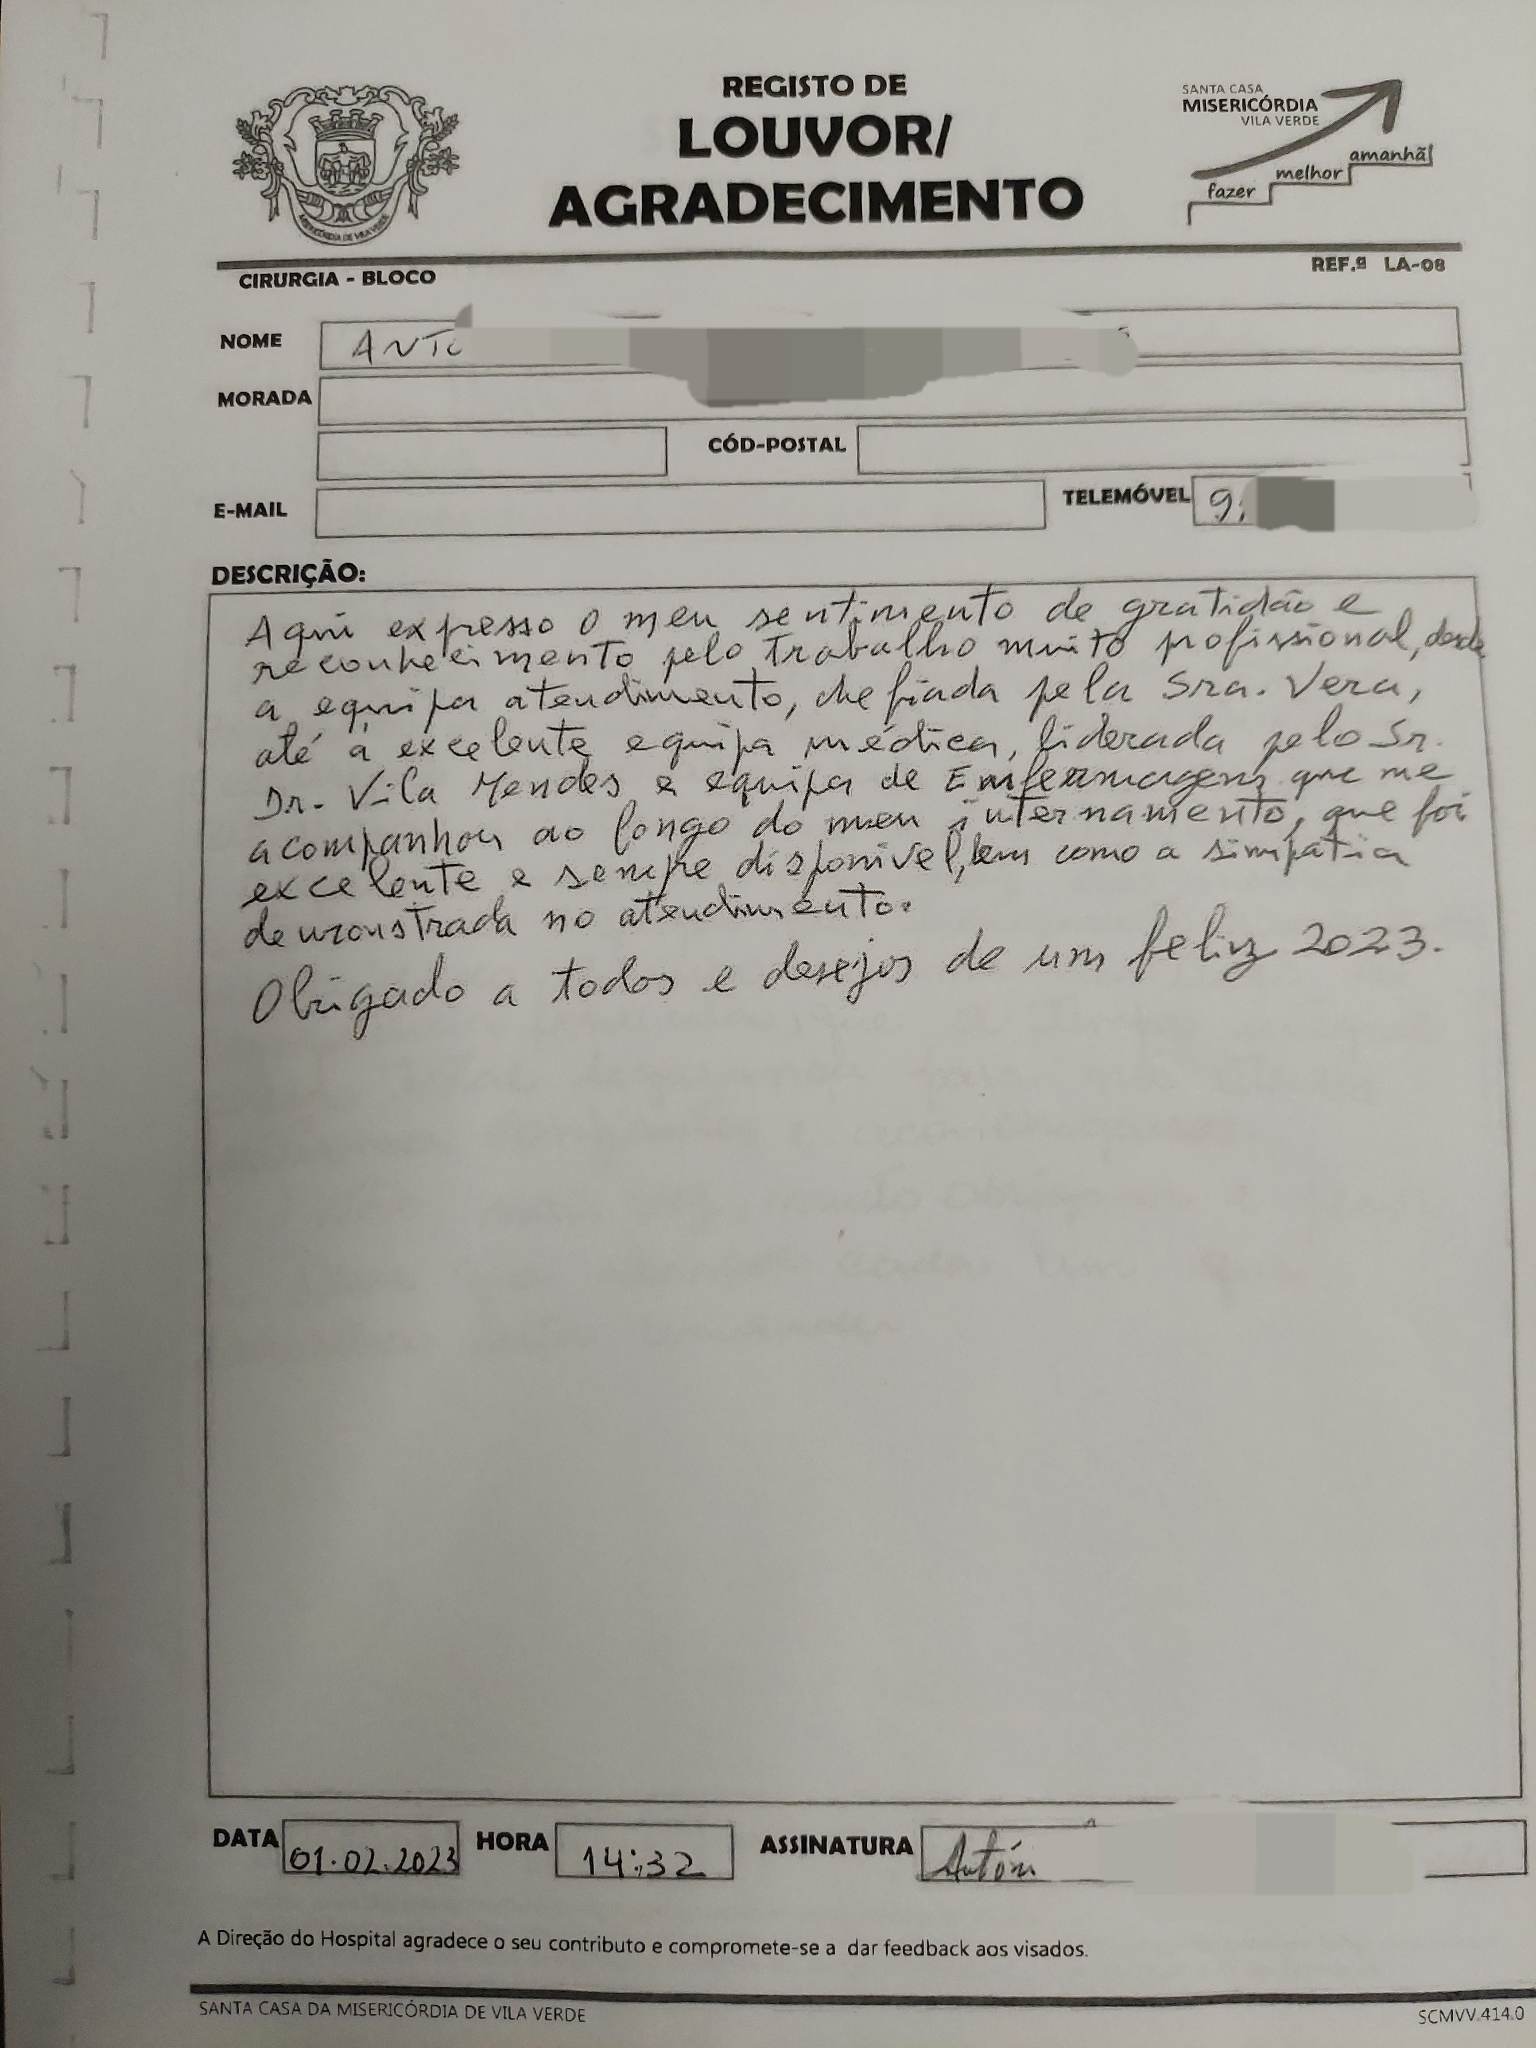 REGISTO DE
LOUVOR/
AGRADECIMENTO
MISERICÓRDIA DE VILA VERDE
SANTA CASA
MISERICÓRDIA
VILA VERDE
fazer melhor amanhã
CIRURGIA - BLOCO
REF.ª LA-08
NOME ANTÓ
MORADA
CÓD-POSTAL
E-MAIL
TELEMÓVEL 9
DESCRIÇÃO:
Aqui expresso o meu sentimento de gratidão e
reconhecimento pelo trabalho muito profissional, desde
a equipa atendimento, chefiada pela Sra. Vera,
até à excelente equipa médica, liderada pelo Sr.
Dr. Vila Mendes e equipa de Enfermagem que me
acompanhou ao longo do meu internamento, que foi
excelente e sempre disponível, bem como a simpatia
demonstrada no atendimento.
Obrigado a todos e desejos de um feliz 2023.
DATA 01.02.2023 HORA 14:32 ASSINATURA Antón
A Direção do Hospital agradece o seu contributo e compromete-se a dar feedback aos visados.
SANTA CASA DA MISERICÓRDIA DE VILA VERDE
SCMVV.414.0